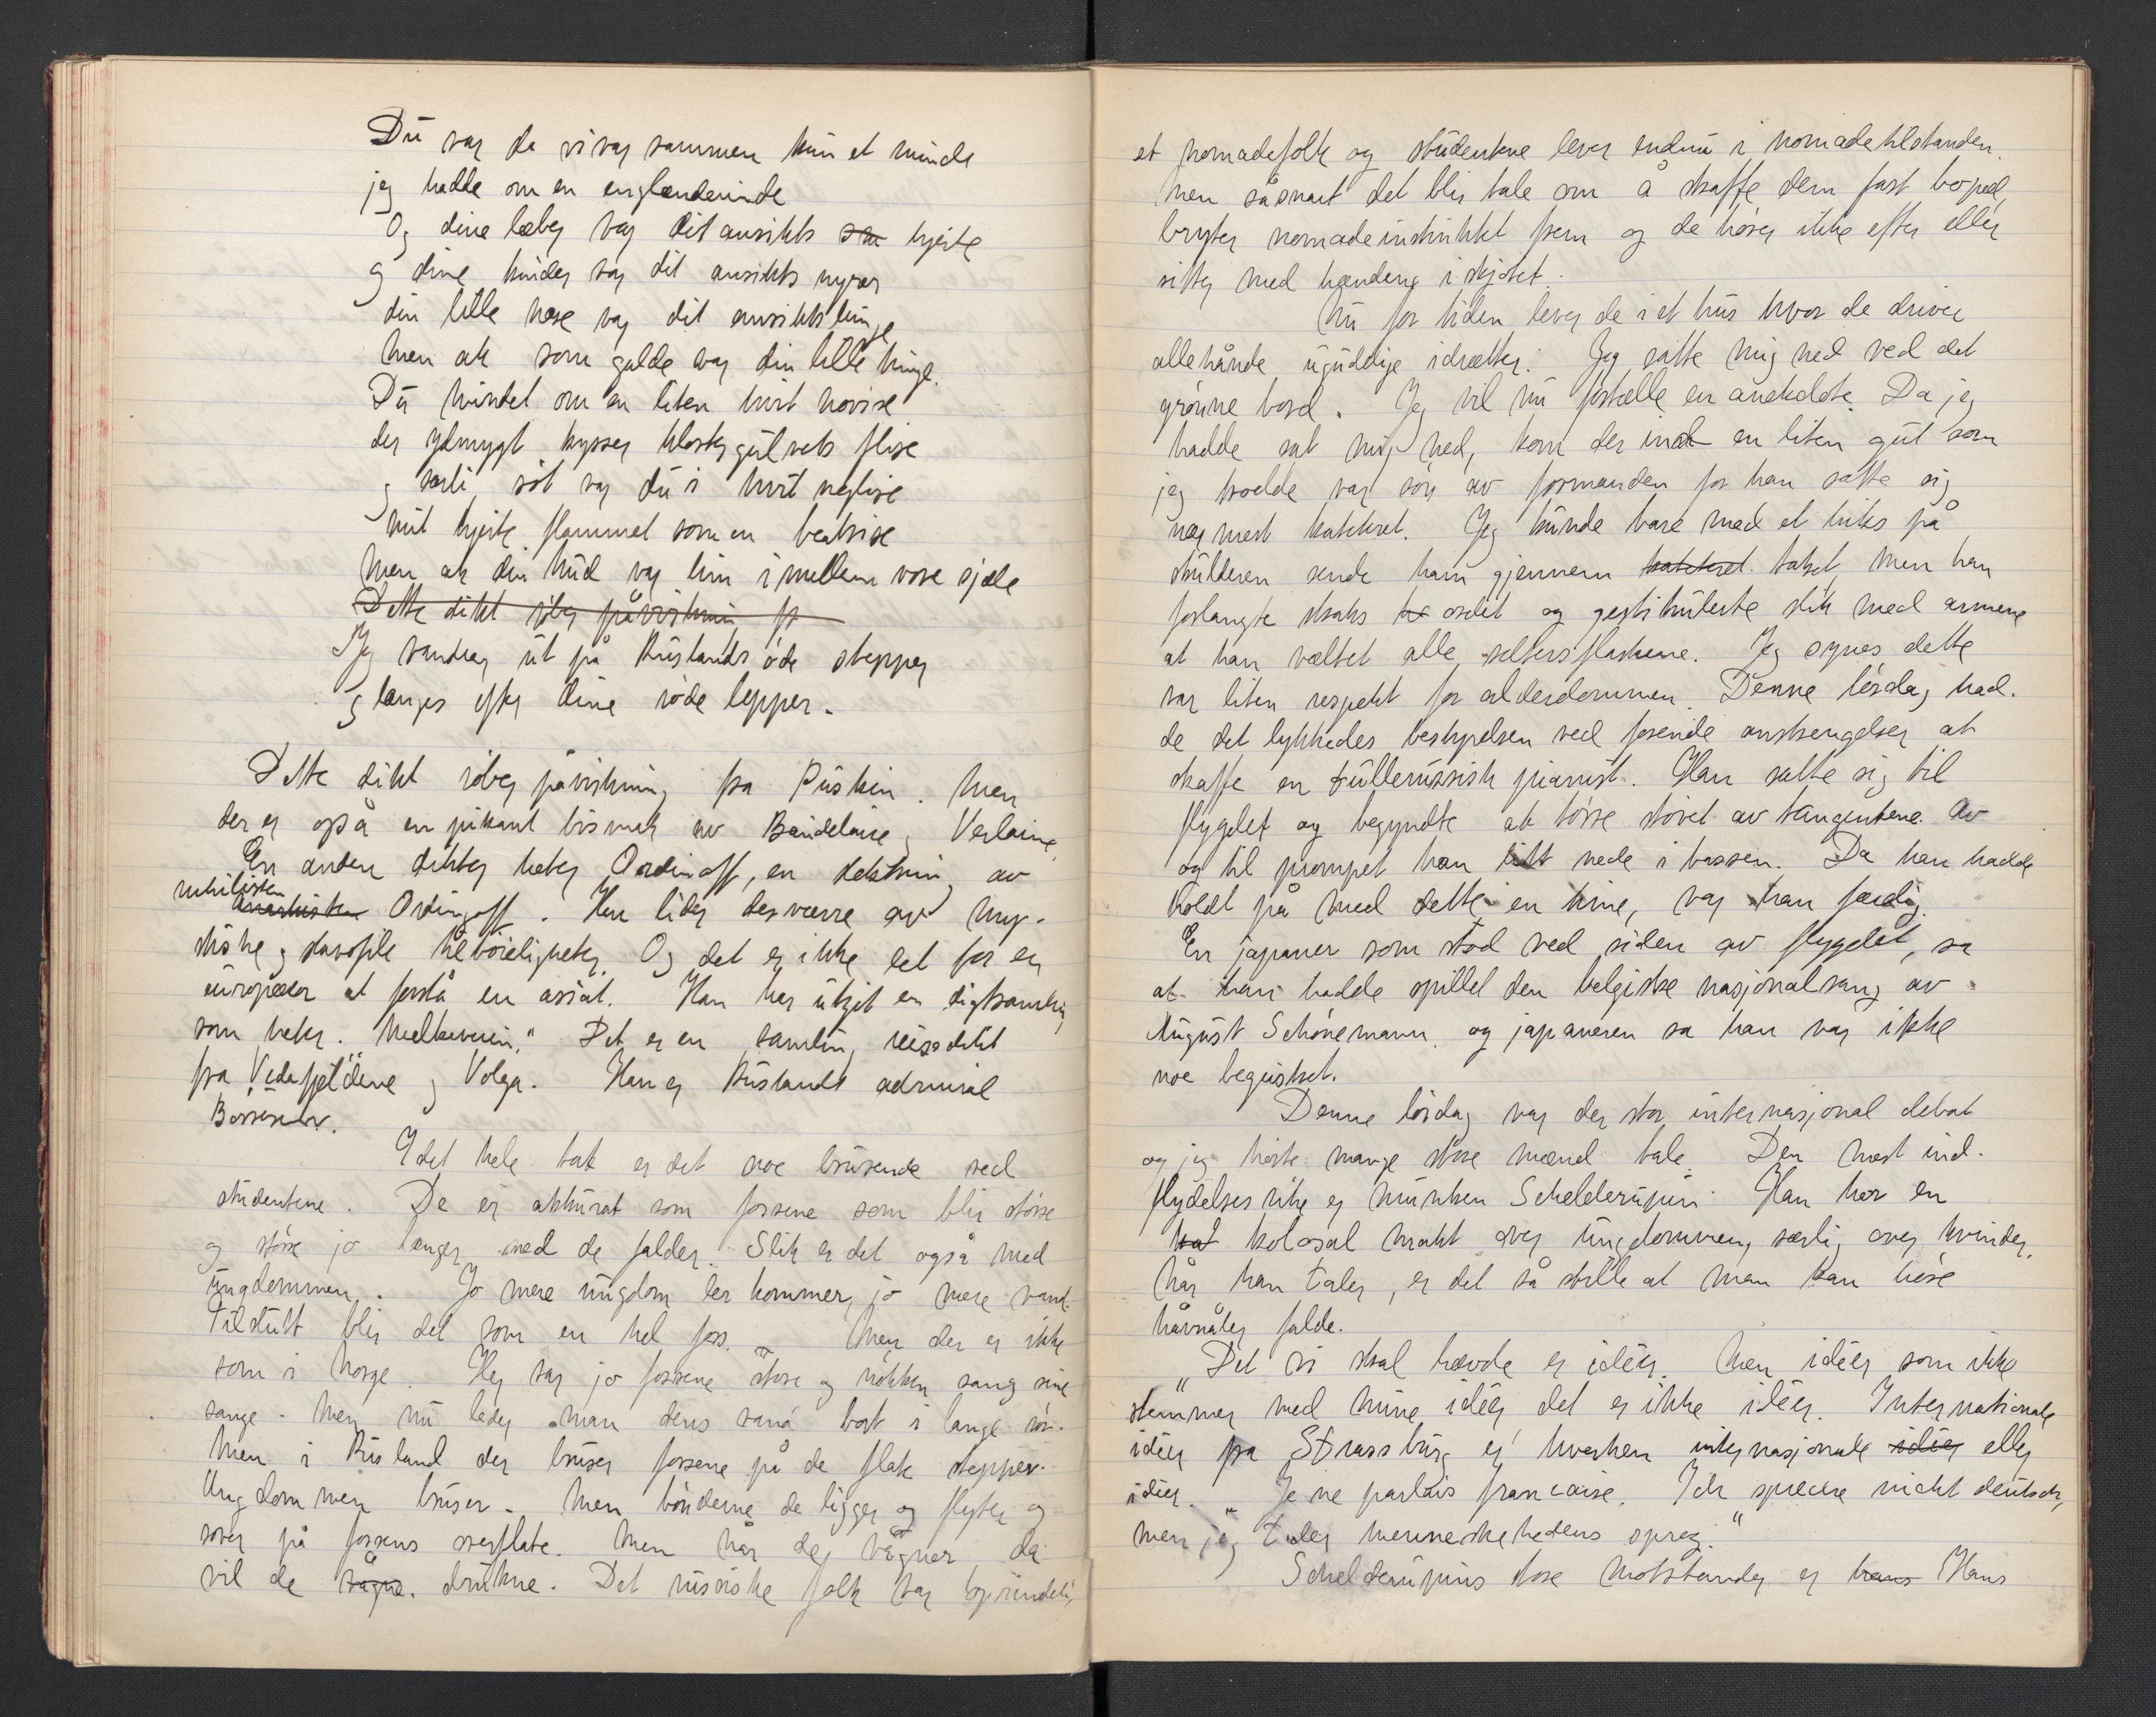 Du var da vi var sammen kun et minde
jeg hadde om en englænderinde
Og dine læber var dit ansikts hjerte
og dine kinder var dit ansikts nyrer
din lille næse var dit ansikts lunge
men ak som galde var din lille tunge.
Du mindet om en liten hvit novise
der ydmygt kysser klostergulvets flise
og særli søt var du i hvit neglise
mit hjerte flammet som en
men ak din hud var lim imellem vore sjæle
Dette dikt røber påvirkning fr
Jeg vandrer ut på Ruslands øde stepper
og længes efter dine røde lepper.
Dette dikt røber påvirkning fra Puskin. Men
der er også en pikant bismak av Baudelaire og Verlaine,
En anden dikter heter Ordinoff, en slektning av
nihilisten
anarkisten Ordinoff. Han lider desværre av my-
stiske og slavofile tilbøieligheter. Og det er ikke let for en
europæer at forstå en asiat. Han har utgit en digtsamling
som heter. "Melkeveien." Det er en samling reisedikt
fra Vidafjeldene og Volga. Han er Ruslands admiral
I det hele tat er det noe brusende ved
studentene. De er akkurat som fossene som blir større
og større jo længer ned de falder. Slik er det også med
ungdommen. Jo mere ungdom der kommer, jo mere vand.
Tilslutt blir det som en hel foss. Men der er ikke
som i Norge. Her var jo fossene store og nøkken sang sine
sange. Men nu leder man dens vand bort i lange rør.
Men i Rusland der bruser fossene på de flate stepper.
Ungdommen bruser. Men bønderne de ligger og flyter og
sover på fossens overflate. Men når de vågner, da
vil de vågne. drukne. Det russiske folk var oprindeli,
et nomadefolk og studentene lever endnu i nomadetilstanden.
men såsnart det blir tale om å skaffe dem fast bopæl,
bryter nomadeinstinktet frem og de hører ikke efter eller
sitter med hændene i skjøtet.
Nu for tiden lever de i et hus hvor de driver
allehånde ugudelige idrætter. Jeg satte mig ned ved det
grønne bord. Jeg vil nu fortælle en anekdote. Da jeg
hadde sat mig ned, kom der ind en liten gut som
jeg trodde var søn av formanden for han satte sig
nærmest katetret. Jeg kunde bare med et kiks på
skulderen sende ham gjennem katetret. taket, men han
forlangte straks ordet og gestikulerte slik med armene
at han væltet alle seltersflaskene. Jeg synes dette
var liten respekt for alderdommen. Denne lørdag had-
de det lykkedes bestyrelsen ved ihærdige anstrengelser at
skaffe en fullerussisk pianist. Han satte sig til
flygelet og begyndte at tørre støvet av tangentene. Av
og til prompet han litt nede i bassen. Da han hadde
holdt på med dette en time, var han færdig.
En japaner som stod ved siden av flygelet, sa
at han hadde spillet den belgiske nasjonalsang av
August Schønemann. og japaneren sa han var ikke
noe begeistret.
Denne lørdag var der stor internasjonal debat
og jeg hørte mange store mænd tale. Den mest ind-
flydelsesrike er munken Schelderupin. Han har en
hat kolosal makt over ungdommen, særlig over kvinder.
Når han taler, er det så stille at man kan høre
hårnåler falde.
"Det vi skal hævde er idéer. Men idéer som ikke
stemmer med mine idéer det er ikke idéer. Internationale
idéer fra Strassburg er hverken internasjonale idéer eller
idéer. "Je ne parlais francaise. Ich spreche nicht deutsch,
men jeg taler menneskehedens sprog."
Schelderupins store motstander er hans Hans